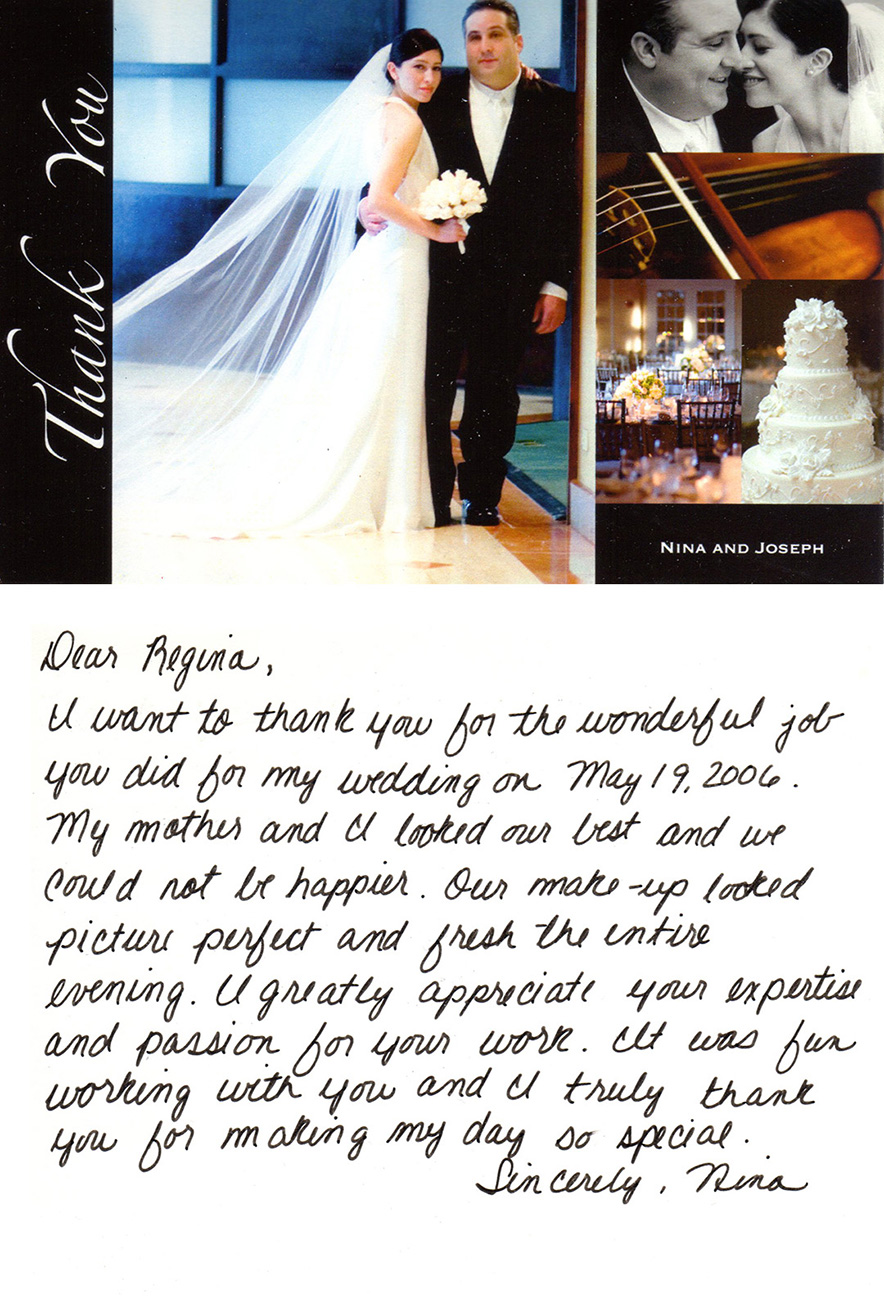 Thank You
NINA AND JOSEPH
Dear Regina,
I want to thank you for the wonderful job
you did for my wedding on May 19, 2006.
My mother and I looked our best and we
could not be happier. Our make-up looked
picture perfect and fresh the entire
evening. I greatly appreciate your expertise
and passion for your work. It was fun
working with you and I truly thank
you for making my day so special.
Sincerely, Nina